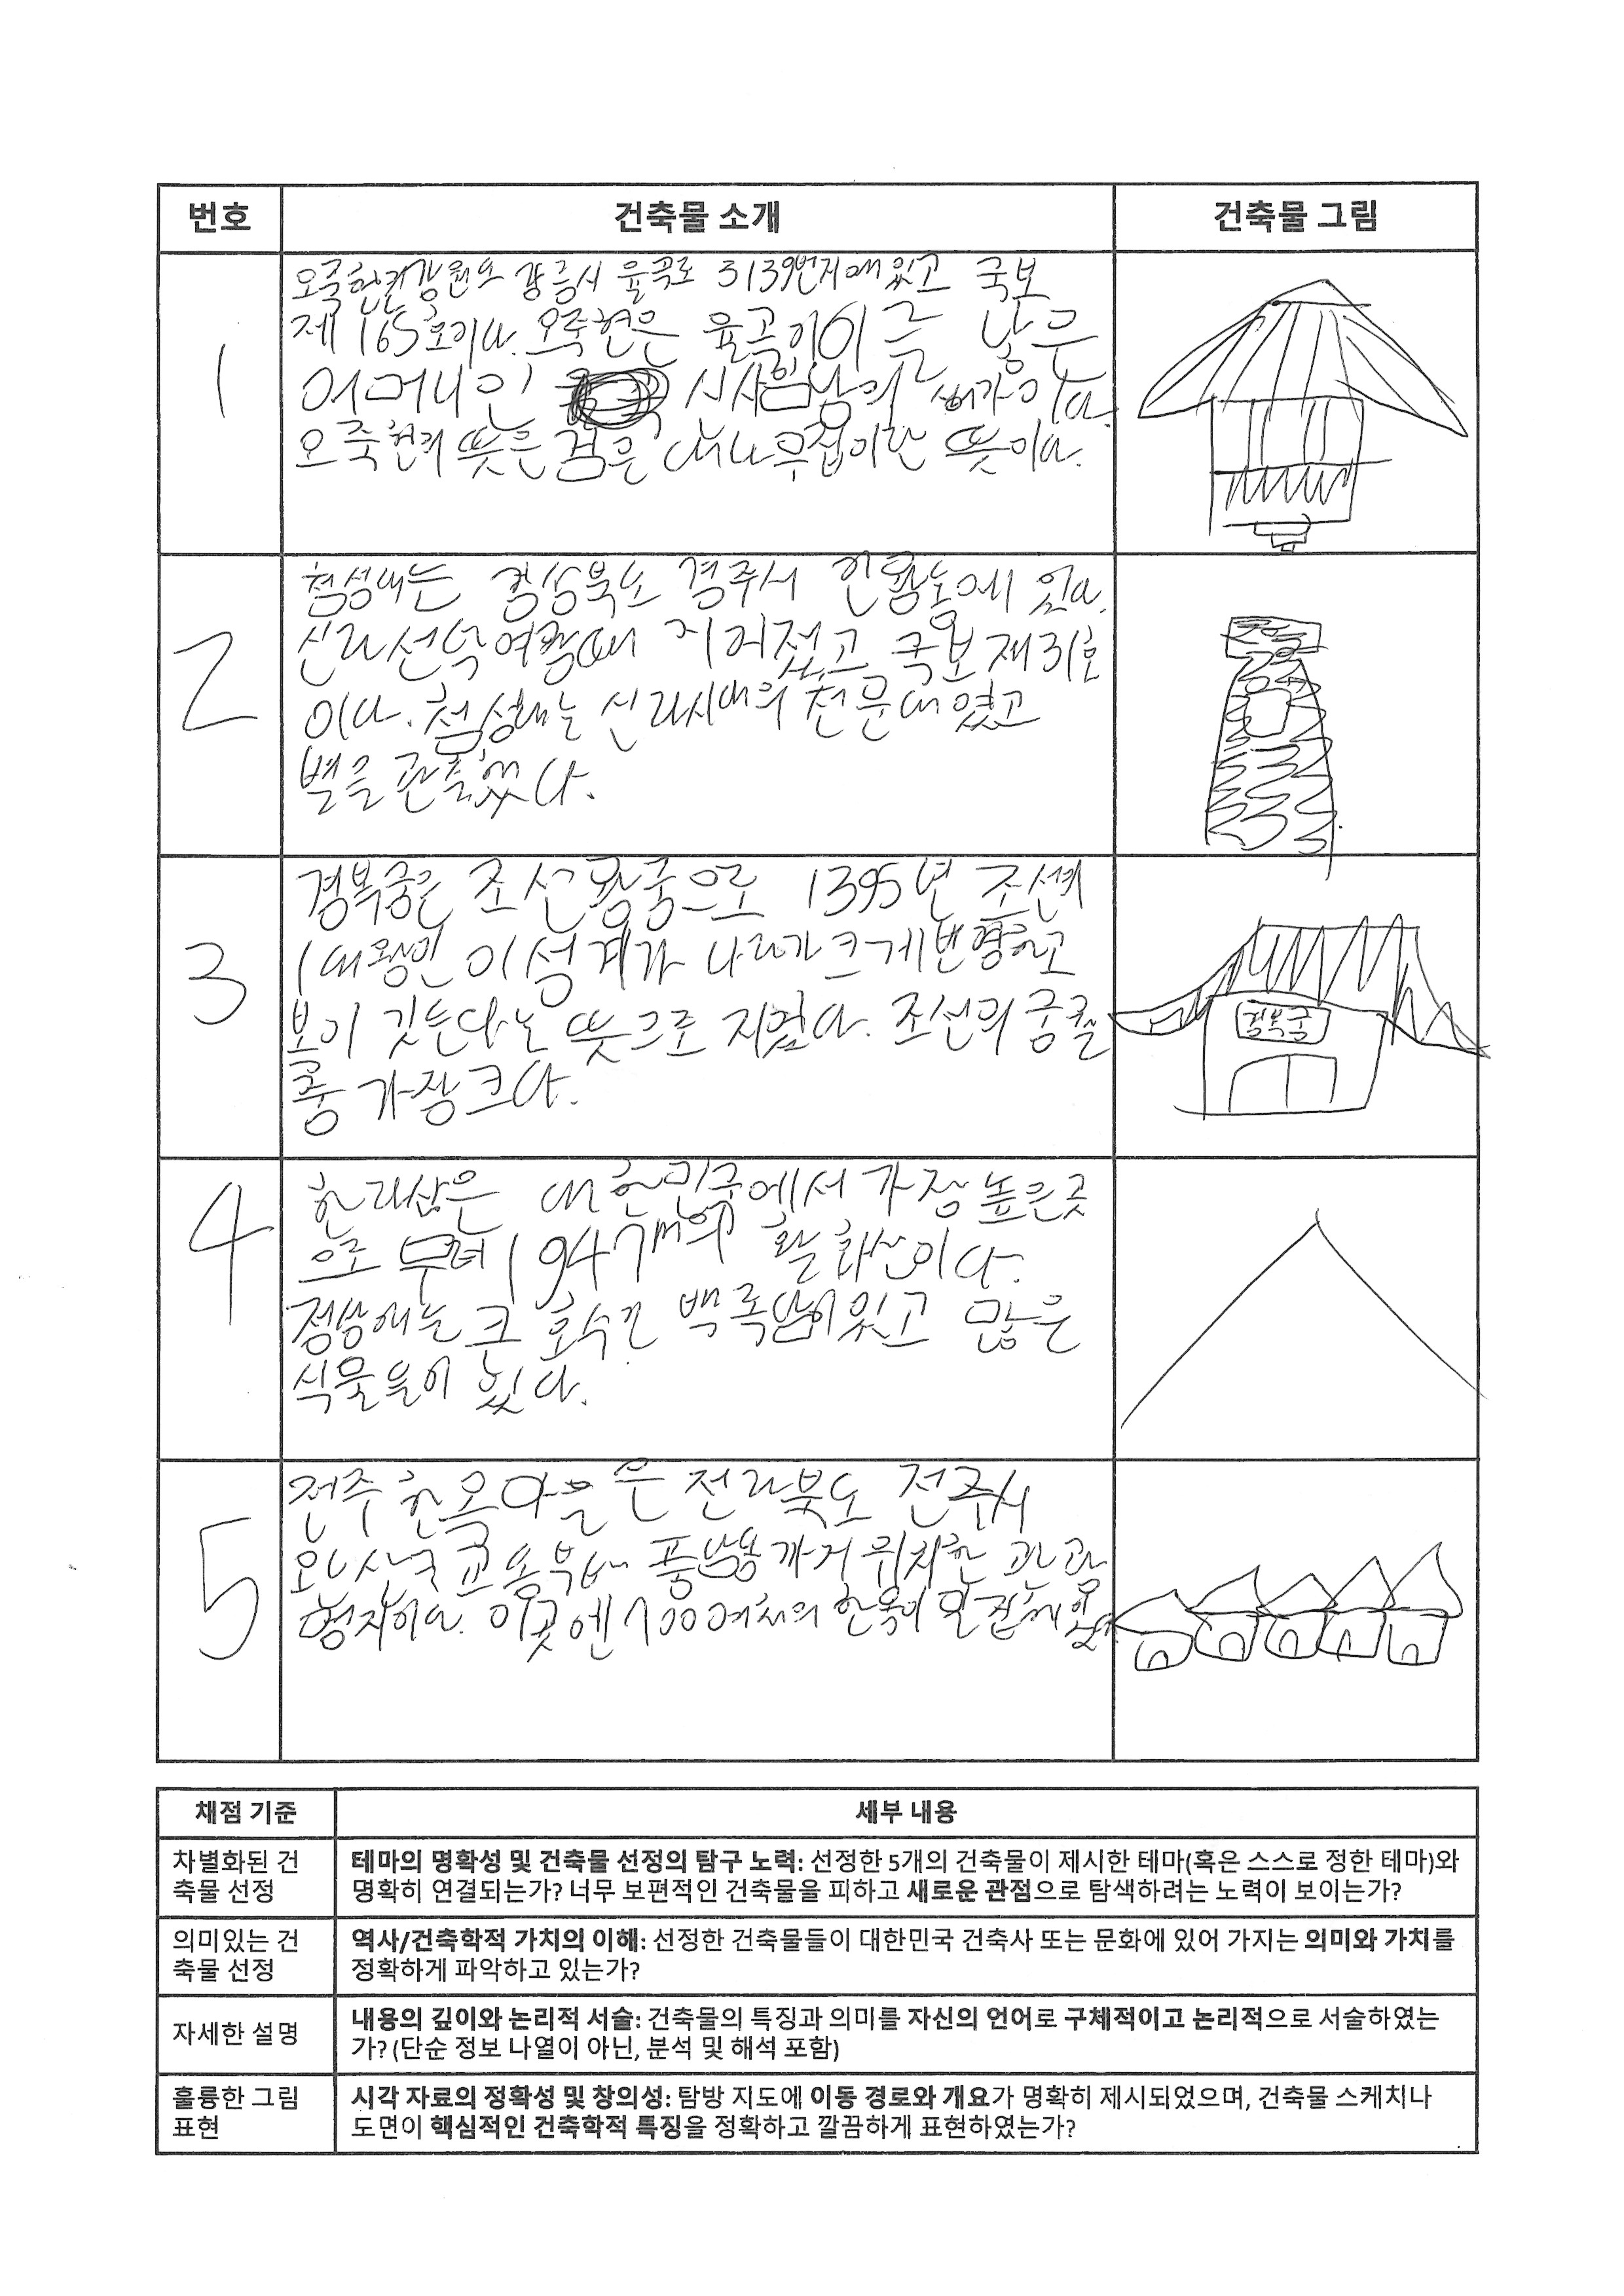 번호 건축물 소개 건축물 그림
1
오죽헌은 강원도 강릉시 율곡로 3139번지에 있고 국보
제 165호이다. 오죽헌은 율곡이이를 낳은
어머니인 신사임당의 생가이다.
오죽헌의 뜻은 검은 대나무집이란 뜻이다.
2
첨성대는 경상북도 경주시 인왕동에 있다.
신라 선덕여왕때 지어졌고 국보 제31호
이다. 첨성대는 신라시대의 천문대였고
별을 관측했다.
3
경복궁은 조선왕궁으로 1395년 조선의
1대왕인 이성계가 나라가 크게 번형하고
복이 깃든다는 뜻으로 지었다. 조선의 궁궐
중 가장 크다.
경복궁
4
한라산은 대한민국에서 가장 높은곳
으로 무려 194개의 활화산이다.
정상에는 큰 호수인 백록담이 있고 많은
식물들이 있다.
5
전주 한옥마을은 전라북도 전주시
완산구 교동부터 풍남동까지 위치한 관광
명지이다. 이곳엔 700여채의 한옥이
채점 기준 세부 내용
차별화된 건
축물 선정
테마의 명확성 및 건축물 선정의 탐구 노력: 선정한 5개의 건축물이 제시한 테마(혹은 스스로 정한 테마)와
명확히 연결되는가? 너무 보편적인 건축물을 피하고 새로운 관점으로 탐색하려는 노력이 보이는가?
의미있는 건
축물 선정
역사/건축학적 가치의 이해: 선정한 건축물들이 대한민국 건축사 또는 문화에 있어 가지는 의미와 가치를
정확하게 파악하고 있는가?
자세한 설명
내용의 깊이와 논리적 서술: 건축물의 특징과 의미를 자신의 언어로 구체적이고 논리적으로 서술하였는
가? (단순 정보 나열이 아닌, 분석 및 해석 포함)
훌륭한 그림
표현
시각 자료의 정확성 및 창의성: 탐방 지도에 이동 경로와 개요가 명확히 제시되었으며, 건축물 스케치나
도면이 핵심적인 건축학적 특징을 정확하고 깔끔하게 표현하였는가?